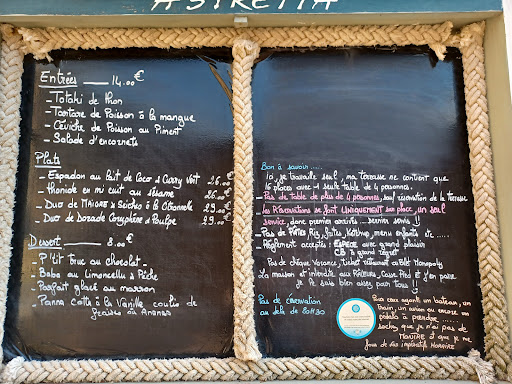 ASTRETTA
Entrées 14.00€
- Tataki de thon
- Tartare de Poisson à la mangue
- Céviche de Poisson au Piment
- Salade d'encornets
Plats
- Espadon au Lait de Coco & Curry Vert 26.00€
- Thonide en mi cuit au sésame 26.00
- Duo de & Seiches à la Citronnelle 29.00€
- Duo de Dorade Coryphène & Poulpe 29.00€
Dessert 8.00€
- P'tit truc au chocolat -
- Baba au Limoncello & Pêche
- Parfait glacé au marron
- Panna cotta à la Vanille coulis de
Fraises ou Ananas
Bon à savoir .....
Ici, je travaille seul, ma terrasse ne contient que
16 places avec 1 seule table de 4 personnes.
- Pas de table de plus de 4 personnes, sauf réservation de la terrasse
- Les Réservations se font UNIQUEMENT sur place, un seul
service, donc premier arrivés ... servis !!
- Pas de Pâtes Riz, Frites, Ketchup, menu enfants etc ....
- Règlement acceptés : ESPECE avec grand plaisir
CB à grand regret
Pas de chèque Vacance, Ticket restaurant ou billet Monopoly
La maison est interdite aux Râleurs, et j'en passe
je le suis bien assez pour tous !!
Pas de réservation
au delà de 20H30
Aux ceux ayant un bateau, un
train, un avion ou encore un
à prendre ......
sachez que je n'ai pas de
MONTRE et que je me
fous de vos impératifs Horaire